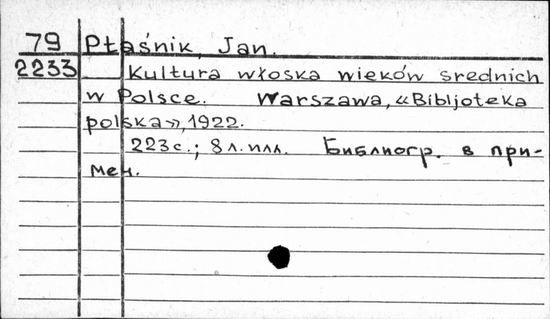 79 Ptaśnik, Jan.
2233 Kultura włoska wieków srednich
w Polsce. Warszawa, «Bibljoteka
polska», 1922.
223 с.; 8 л. илл. Библиогр. в при-
меч.